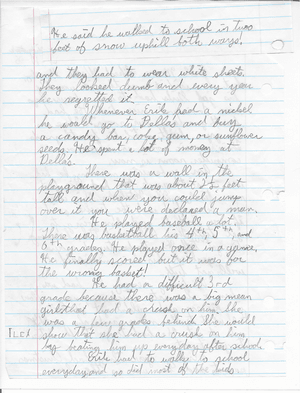 He said he walked to school in two
feet of snow uphill both ways!
and they had to wear white shirts.
They looked dumb and every year
he regretted it.
Whenever Erik had a nickel
he would go to Della's and buy
a candy bar, coke, gum, or sunflower
seeds. He spent a lot of money at
Della's.
There was a wall in the
playground that was about 2½ feet
tall and when you could jump
over it you were declared a man.
He played baseball with
There was basketball his 4th, 5th, and
6th grades. He played once in a game,
He finally scored but it was for
the wrong basket!
He had a difficult 3rd
grade because there was a big mean
girl that had a crush on him. She
was a few grades She would
show that she had a crush on him
by beating him up everyday after school
Erik had to walk to school
everyday and so did most of the kids.